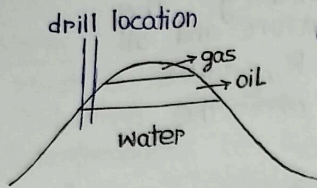 drill location
gas
oil
water